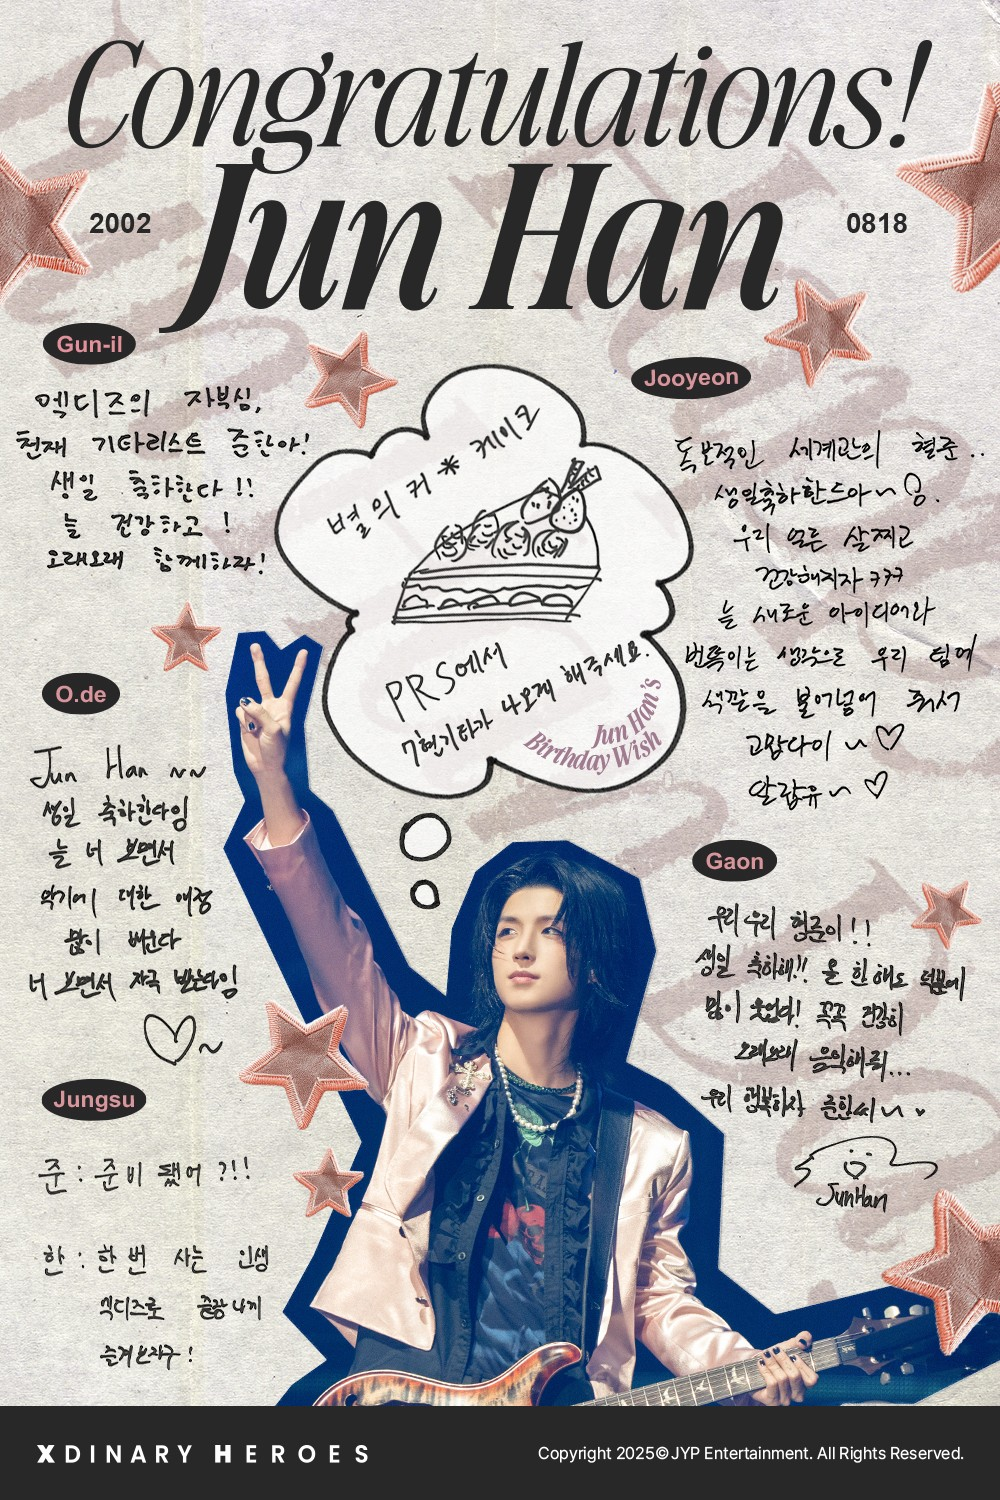 Congratulations!
Jun Han
2002
0818
Gun-il
엑디즈의 자부심,
천재 기타리스트 준한아!
생일 축하한다!!
늘 건강하고!
오래오래 함께하자!
Jooyeon
독보적인 세계관의 형준..
생일축하한드아~
우리 얼른 살찌고
건강해지자 ㅋㅋㅋ
늘 새로운 아이디어와
번뜩이는 생각으로 우리 팀에
색깔을 불어넣어 줘서
고맙다이 ~♡
알랍유~ ♡
별의 커* 케이크
PRS에서
7현기타가 나오게 해주세요.
Jun Han's
Birthday Wish
O.de
Jun Han ~~
생일 축하한다잉
늘 너 보면서
악기에 대한 애정
많이 배운다
너 보면서 자극 받는다잉
♡~
Gaon
우리 우리 형준이!!
생일 축하해!! 올 한해도 덕분에
많이 웃었다! 꼭꼭 건강히
오래오래 음악해줘...
우리 행복하자 준한씨~
JunHan
Jungsu
준 : 준비 됐어 ?!!
한 : 한 번 사는 인생
엑디즈로 즐겁게
즐겨보자구!
XDINARY HEROES
Copyright 2025© JYP Entertainment. All Rights Reserved.